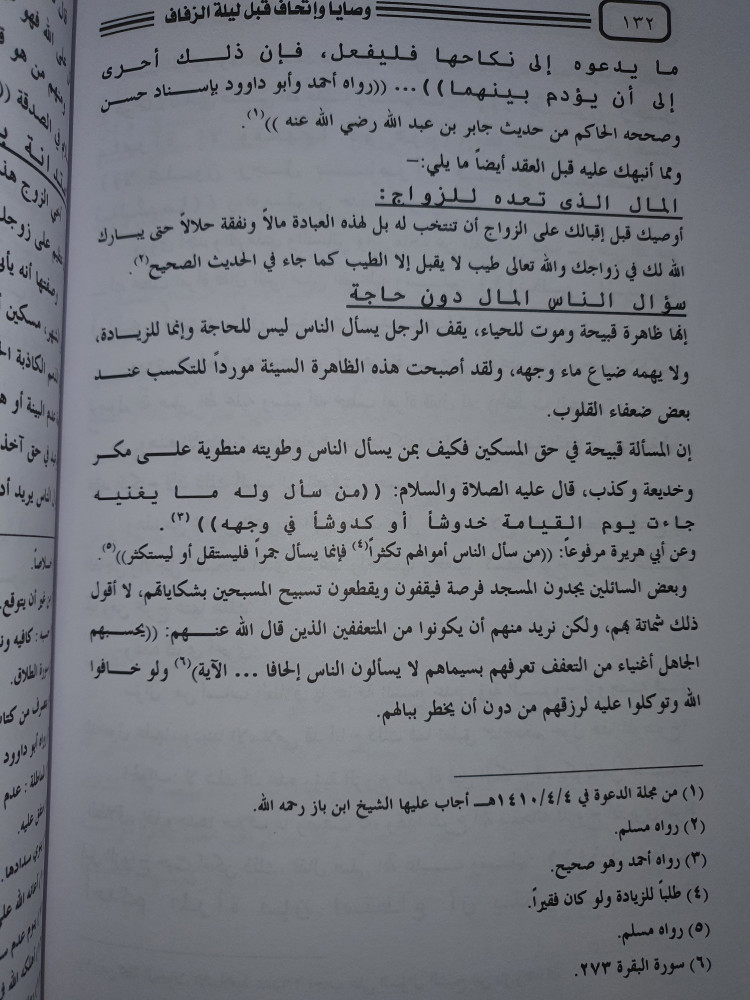 ١٣٢
وصايا وإتحاف قبل ليلة الزفاف
ما يدعوه إلى نكاحها فليفعل، فإن ذلك أحرى
إلى أن يؤدم بينهما)) ... ((رواه أحمد وأبو داوود بإسناد حسن
وصححه الحاكم من حديث جابر بن عبد الله رضي الله عنه ))(١).
ومما أنبهك عليه قبل العقد أيضاً ما يلي:–
المال الذى تعده للزواج:
أوصيك قبل إقبالك على الزواج أن تنتخب له بل لهذه العبادة مالاً ونفقة حلالاً حتى يبارك
الله لك في زواجك والله تعالى طيب لا يقبل إلا الطيب كما جاء في الحديث الصحيح(٢).
سؤال الناس المال دون حاجة
إنها ظاهرة قبيحة وموت للحياء، يقف الرجل يسأل الناس ليس للحاجة وإنما للزيادة،
ولا يهمه ضياع ماء وجهه، ولقد أصبحت هذه الظاهرة السيئة مورداً للتكسب عند
بعض ضعفاء القلوب.
إن المسألة قبيحة في حق المسكين فكيف بمن يسأل الناس وطويته منطوية على مكر
وخديعة وكذب، قال عليه الصلاة والسلام: ((من سأل وله ما يغنيه
جاءت يوم القيامة خدوشاً أو كدوشاً في وجهه))(٣).
وعن أبي هريرة مرفوعاً: ((من سأل الناس أموالهم تكثراً(٤) فإنما يسأل جمراً فليستقل أو ليستكثر))(٥).
وبعض السائلين يجدون المسجد فرصة فيقفون ويقطعون تسبيح المسبحين بشكاياتهم، لا أقول
ذلك شماتة بهم، ولكن نريد منهم أن يكونوا من المتعففين الذين قال الله عنهم: ((يحسبهم
الجاهل أغنياء من التعفف تعرفهم بسيماهم لا يسألون الناس إلحافا ... الآية)(٦) ولو خافوا
الله وتوكلوا عليه لرزقهم من دون أن يخطر ببالهم.
(١) من مجلة الدعوة في ١٤١٠/٤/٤هـ أجاب عليها الشيخ ابن باز رحمه الله.
(٢) رواه مسلم.
(٣) رواه أحمد وهو صحيح.
(٤) طلباً للزيادة ولو كان فقيراً.
(٥) رواه مسلم.
(٦) سورة البقرة ٢٧٣.